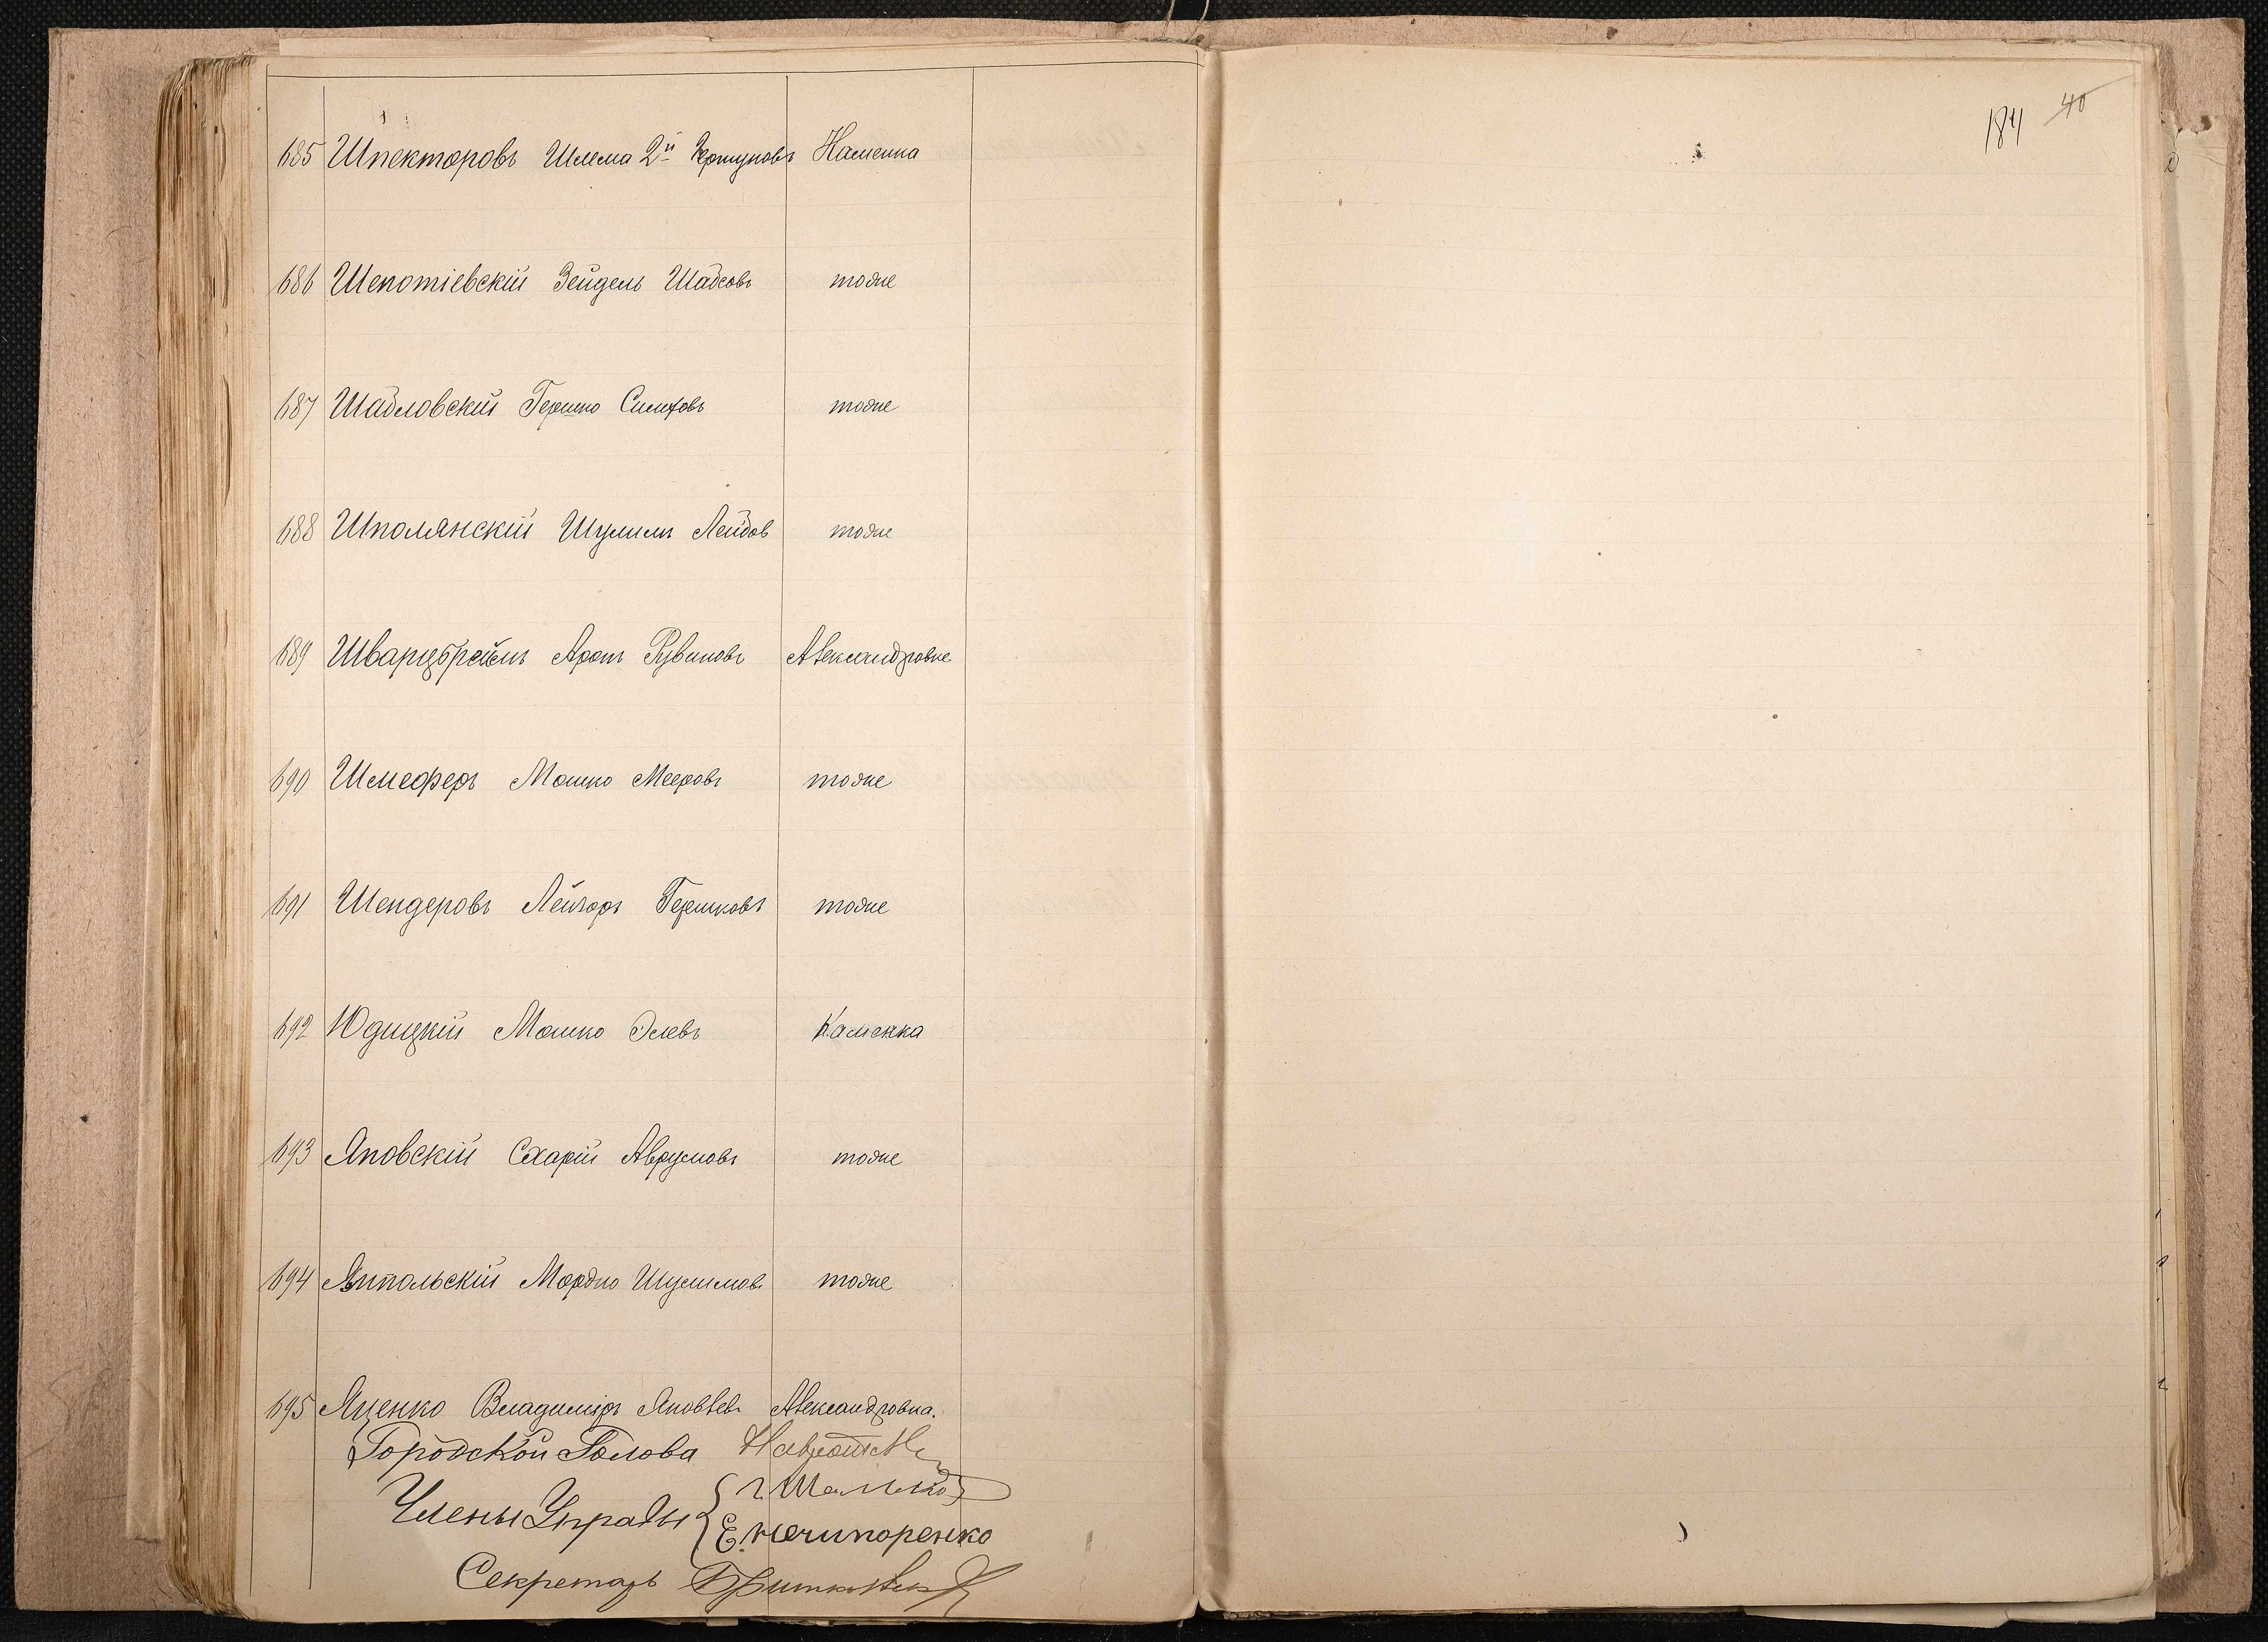 184 40
685 Шпекторовъ Шлема 2й Каменка
686 Шепотіевскій Зейдель Шабсовъ тоже
687 Шадловскій Гершко тоже
688 Шполянскій Шулимъ Лейбов тоже
689 Шварцбреймъ Аронъ Рувиновъ Александровке
690 Шмеферъ Мошко Мееровъ тоже
691 Шендеровъ Лейзоръ Гершковъ тоже
692 Юдицкій Мошко Элевъ Каменка
693 Яновскій Схарій Аврумовъ тоже
694 Ямпольскій Мордко Шулимов тоже
695 Яценко Владиміръ Яковлев Александровка.
Городской Голова
Члены Управы
Е. Нечипоренко
Секретарь